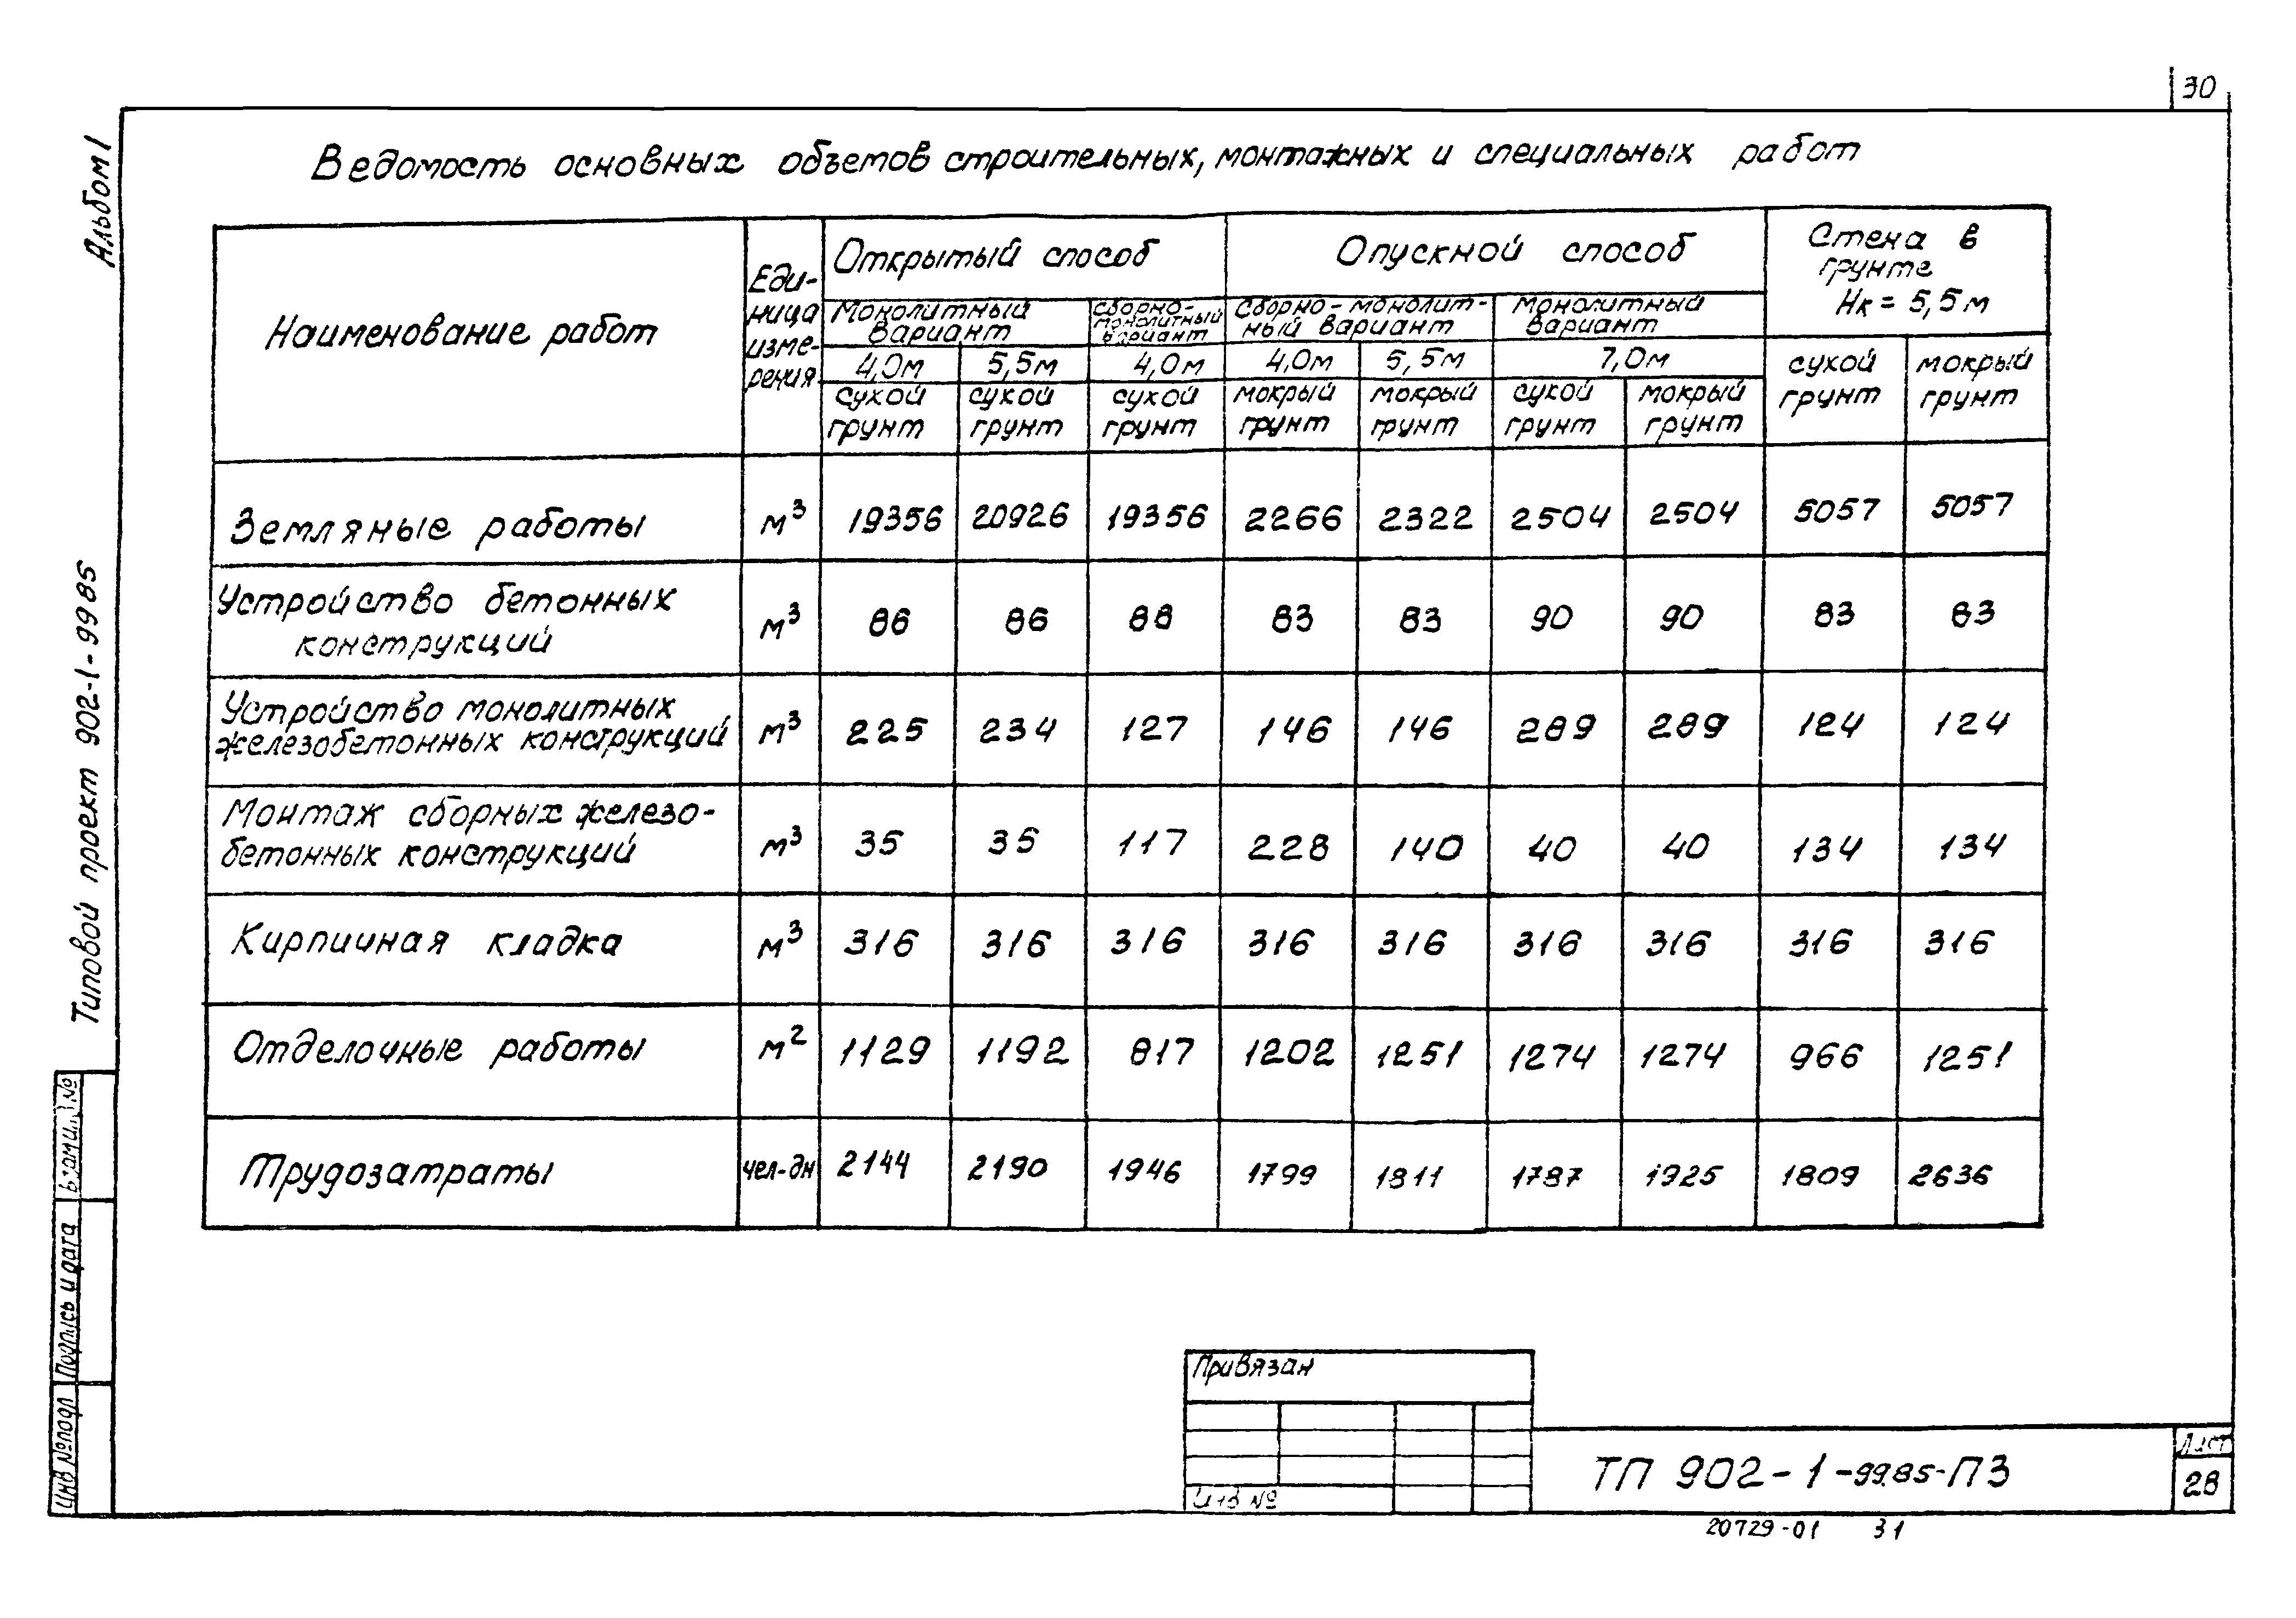 30
Альбом 1
Типовой проект 902-1-99 85
Ведомость основных объемов строительных, монтажных и специальных работ
Наименование работ
Еди-
ница
изме-
рения
Открытый способ
Опускной способ
Стена в
грунте
Нк = 5,5м
Монолитный
вариант
сборно-
монолитный
вариант
Сборно-монолит-
ный вариант
Монолитный
вариант
4,0м 5,5м 4,0м 4,0м 5,5м 7,0м
сухой грунт
сухой грунт
сухой грунт
мокрый грунт
мокрый грунт
сухой грунт
мокрый грунт
сухой грунт
мокрый грунт
Земляные работы м³ 19356 20926 19356 2266 2322 2504 2504 5057 5057
Устройство бетонных
конструкций м³ 86 86 88 83 83 90 90 83 83
Устройство монолитных
железобетонных конструкций м³ 225 234 127 146 146 289 289 124 124
Монтаж сборных железо-
бетонных конструкций м³ 35 35 117 228 140 40 40 134 134
Кирпичная кладка м³ 316 316 316 316 316 316 316 316 316
Отделочные работы м² 1129 1192 817 1202 1251 1274 1274 966 1251
Трудозатраты чел-дн 2144 2190 1946 1799 1811 1787 1925 1809 2636
Привязан
Инв №
ТП 902-1-99.85-ПЗ
Лист
28
20729-01 31
№
Подпись и дата
Инв № подл